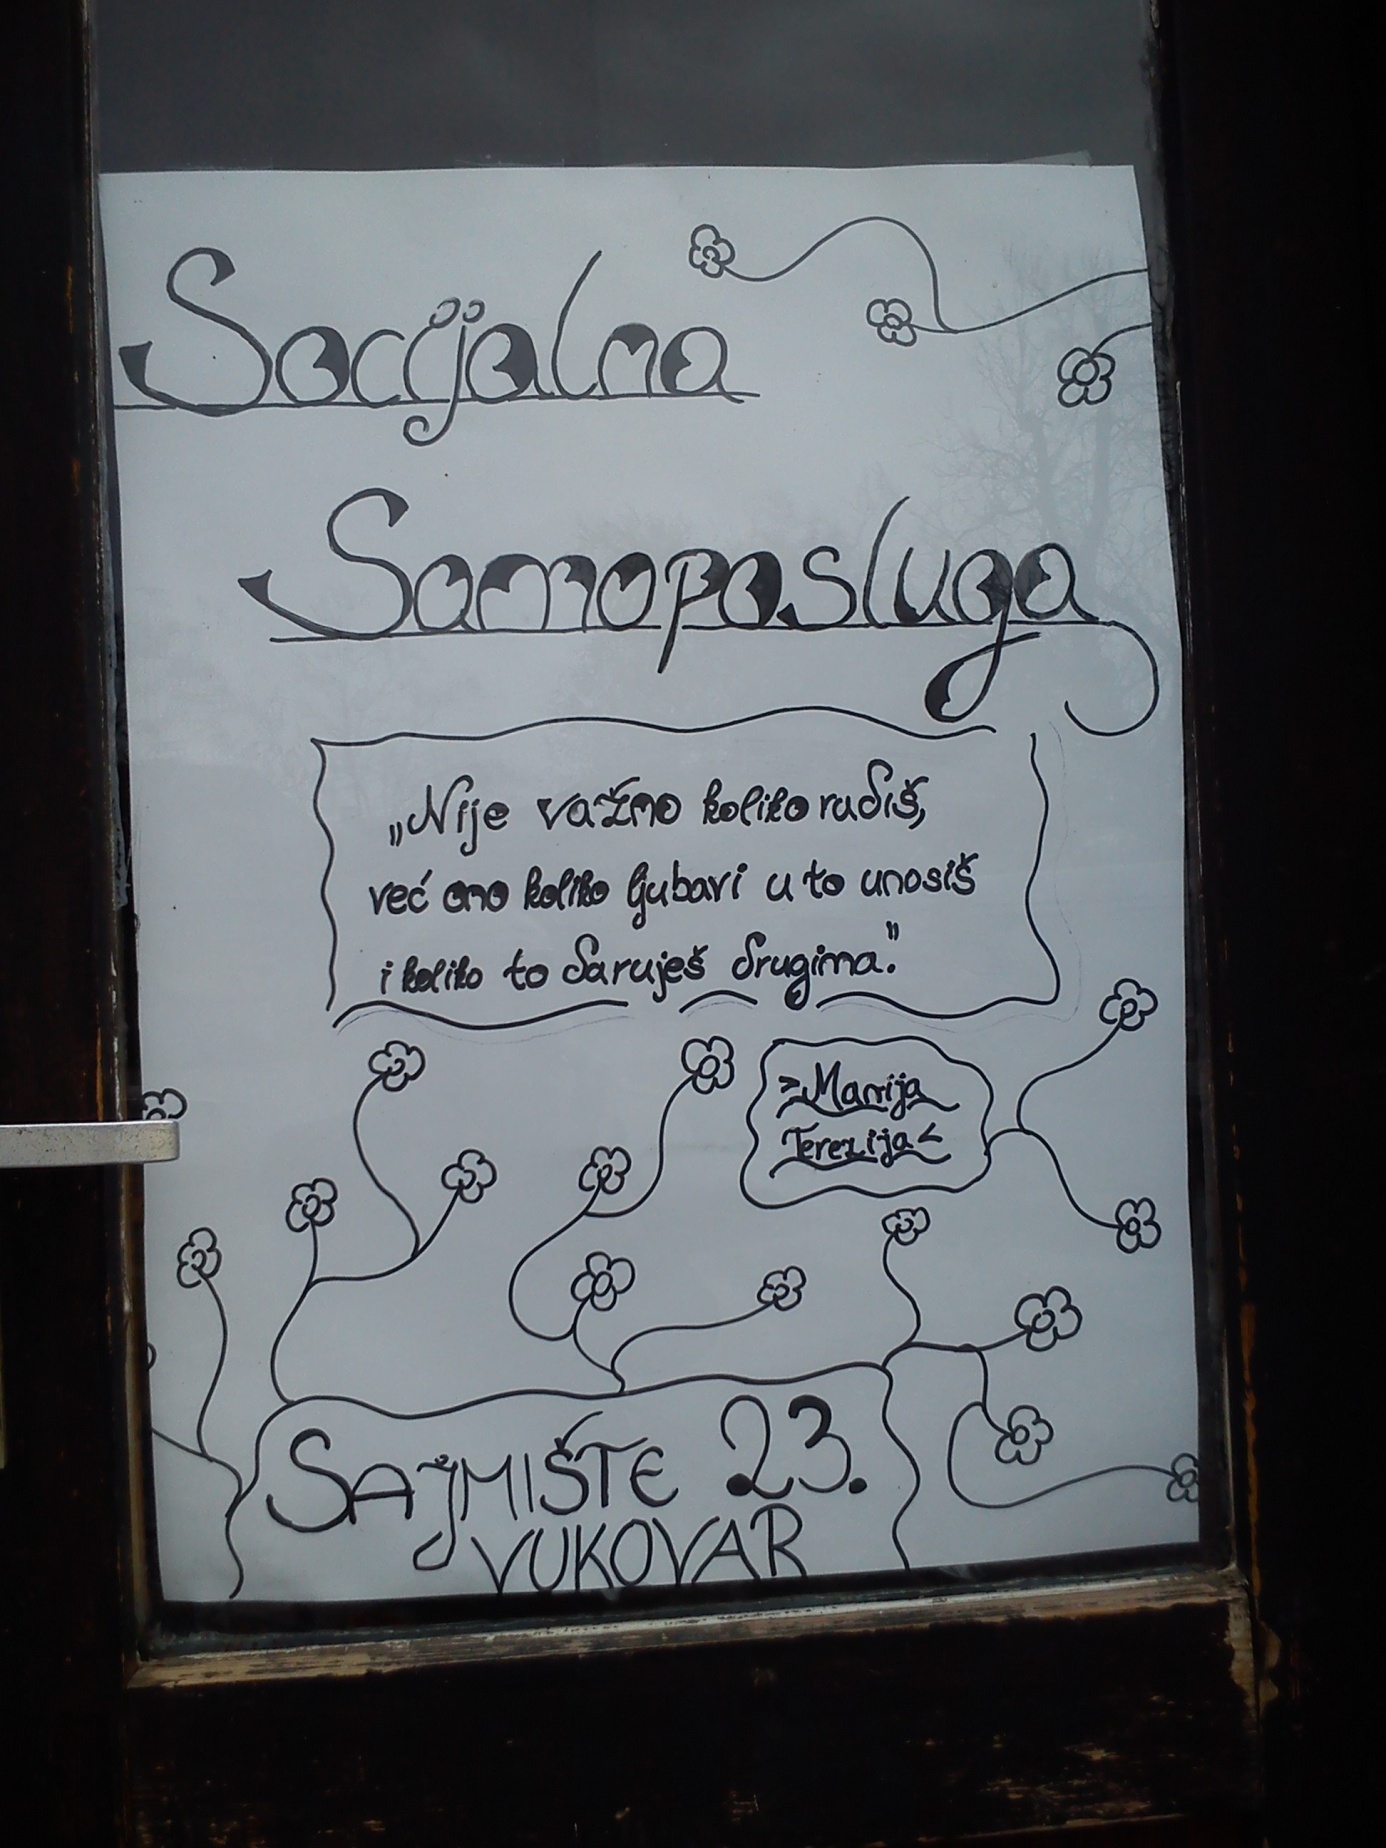 Socijalna
Samoposluga
„Nije važno koliko radiš,
već ono koliko ljubavi u to unosiš
i koliko to daruješ drugima."
>Marija
Terezija<
SAJMIŠTE 23.
VUKOVAR